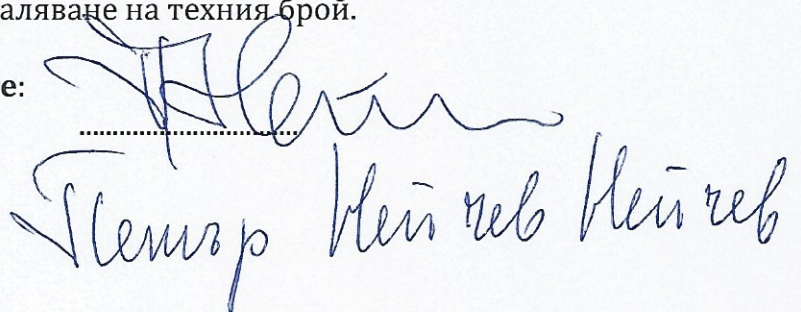 аляване на техния брой.
е:
Петър Нейчев Нейчев